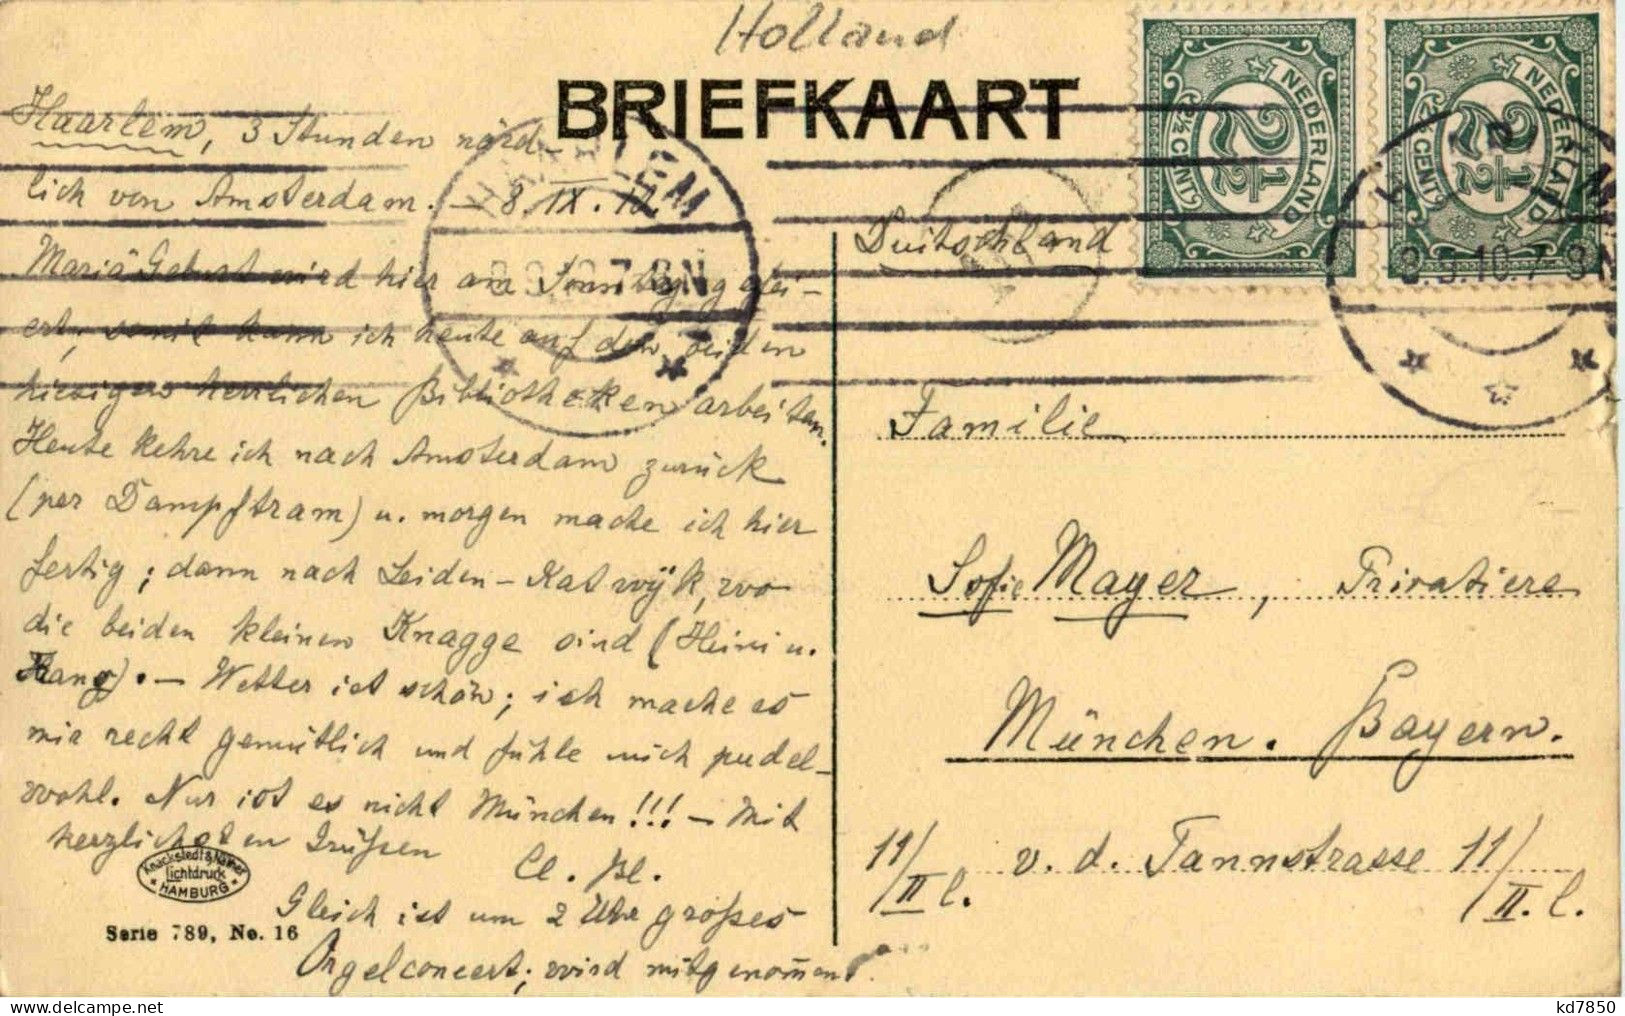 Holland
BRIEFKAART
Haarlem, 3 Stunden nörd-
lich von Amsterdam. -
Mariä Geburt wird hier am Sonntag gfei-
ert, somit kann ich heute auf den beiden
hiesigen herrlichen Bibliotheken arbeiten.
Heute kehre ich nach Amsterdam zurück
(per Dampftram) u. morgen mache ich hier
fertig; dann nach Leiden - Katwÿk, wo
die beiden kleinen Knagge sind (Heini u.
Hans). - Wetter ist schön; ich mache es
mir recht gemütlich und fühle mich pudel-
wohl. Nur ist es nicht München!!! - Mit
herzlichsten Grüßen
Cl. Bl.
Gleich ist um 2 Uhr großes
Orgelconcert; wird mitgenom̄en.
Knackstedt & Näther
Lichtdruck
HAMBURG
Serie 789, No. 16
NEDERLAND
2½
2½ CENT
NEDERLAND
2½
2½ CENT
HAARLEM
8.IX.10.
8.9.10.7-8N
8.9.10.7-8
Duitschland
Familie
Sofie Mayer, Privatiere
München. Bayern.
v. d. Tannstrasse 11/
II. l.
11/
II l.
kd7850